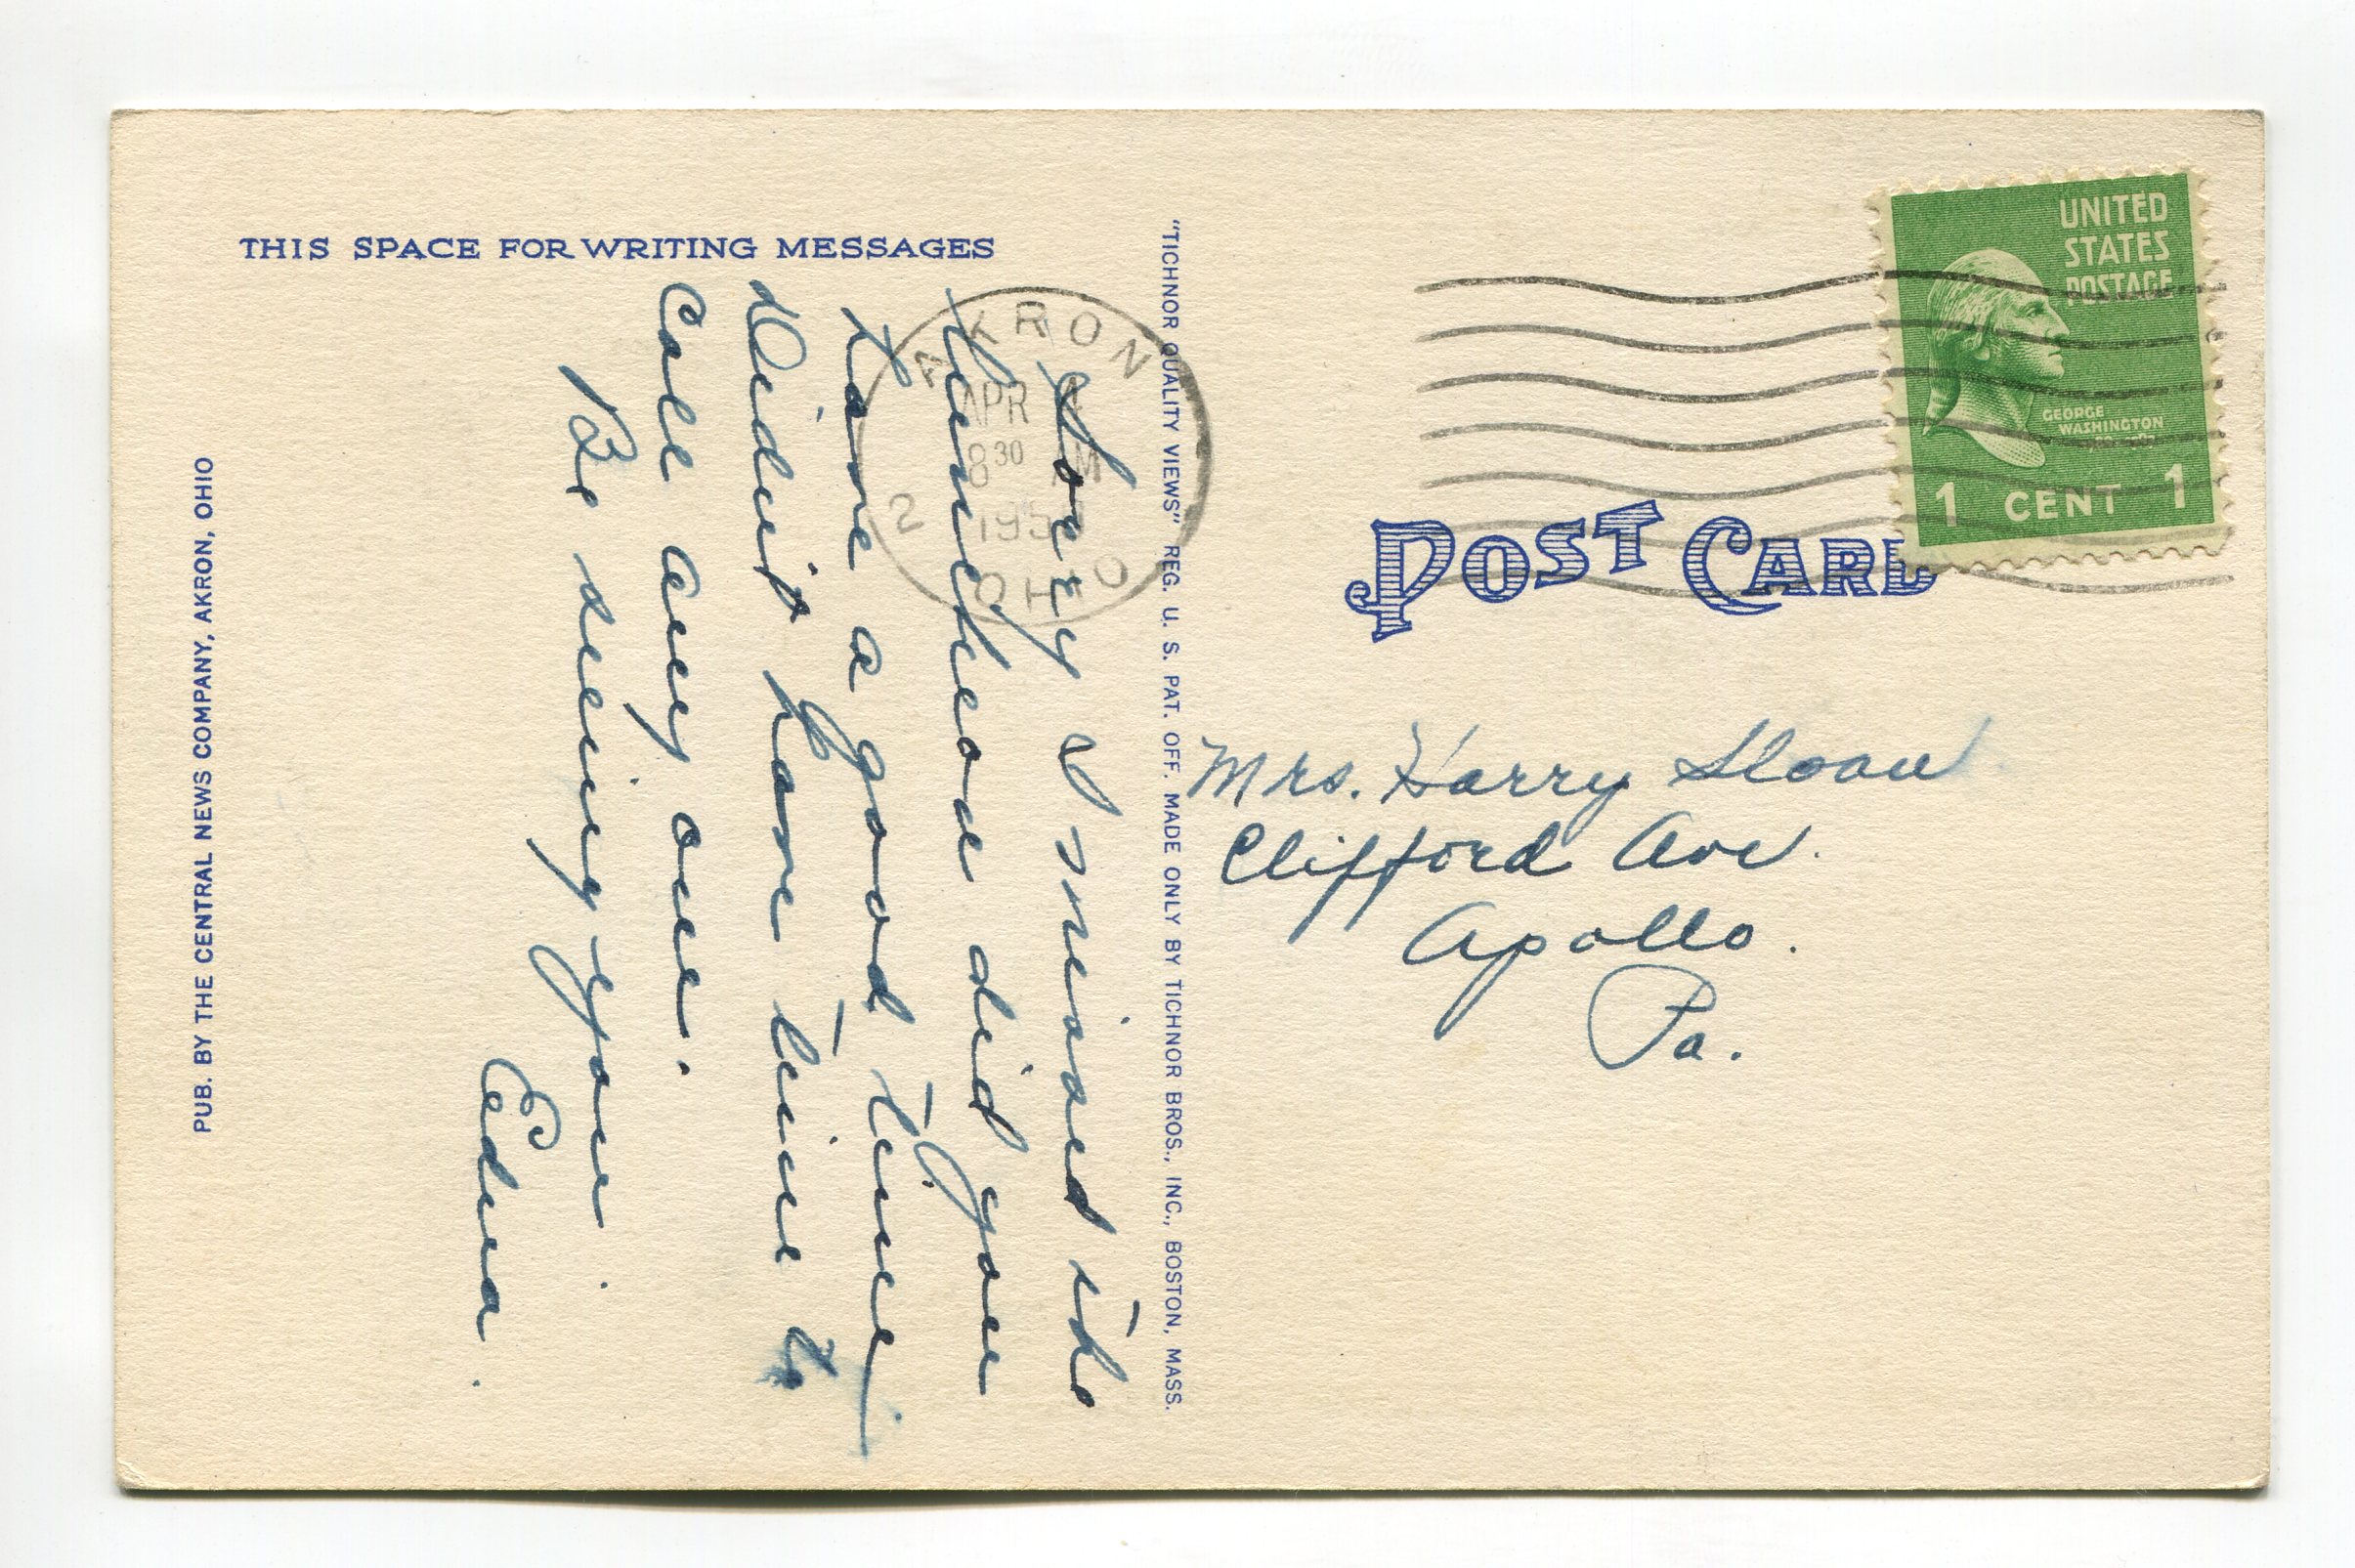 THIS SPACE FOR WRITING MESSAGES
Sorry I missed the
luncheon did you
have a good time
Didn't have time to
call any one.
Be seeing you.
Edna.
PUB. BY THE CENTRAL NEWS COMPANY, AKRON, OHIO
"TICHNOR QUALITY VIEWS" REG. U. S. PAT. OFF. MADE ONLY BY TICHNOR BROS., INC., BOSTON, MASS.
AKRON
APR
8 30 AM
2
OHIO
UNITED
STATES
POSTAGE
GEORGE
WASHINGTON
1 CENT 1
POST CARD
Mrs. Harry Sloan
Clifford Ave.
Apollo.
Pa.